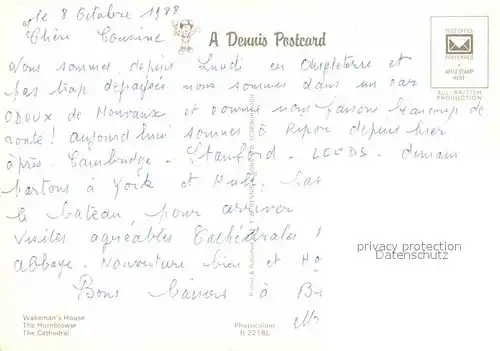 le 8 Octobre 1988
Chère Cousine
A Dennis Postcard
POST OFFICE
PREFERRED
AFFIX STAMP
HERE
ALL-BRITISH
PRODUCTION
Nous sommes depuis Lundi en Angleterre et
pas trop dépaysés nous sommes dans un car
ODOUX de Mouvaux et comme nous faisons beaucoup de
route! aujourd'hui sommes à Ripon depuis hier
après Cambridge - Stanford - LEEDS. demain
partons à York et Hull.
le bateau, pour arriver
Visites agréables Cathédrales !
abbaye. Nourriture bien et
Bons baisers à
privacy protection
Cartes-Postales.com
Wakeman's House
The Hornblower
The Cathedral
Photocolour
R 2218L